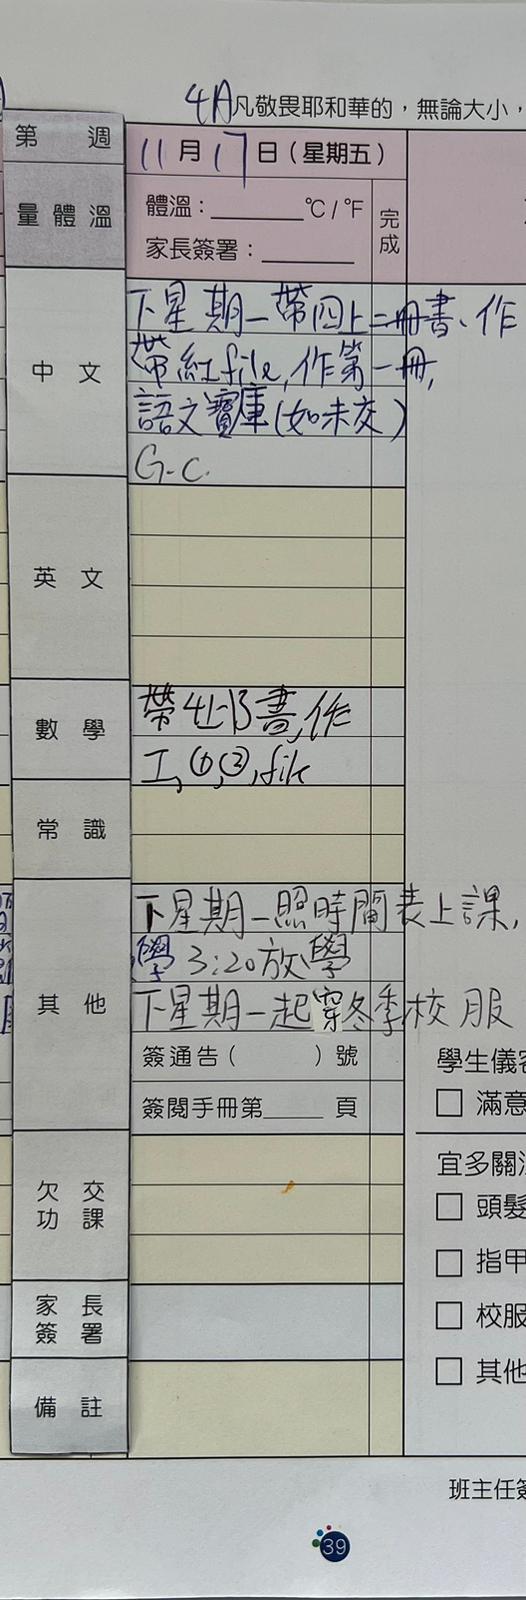 4A凡敬畏耶和華的，無論大小，
第 週
11月17日（星期五）
量體溫
體溫：______°C / °F
家長簽署：______
完成
中文
下星期一帶四上二冊書、作
帶紅file,作第一冊,
語文寶庫(如未交)
G.C.
英文
數學
帶4上B書,作
工,①,②,file
常識
其他
下星期一照時間表上課,
學 3:20放學
下星期一起穿冬季校服
簽通告（ ）號
簽閱手冊第______頁
學生儀容
滿意
欠交功課
宜多關注
頭髮
指甲
校服
其他
家長簽署
備註
班主任簽
39